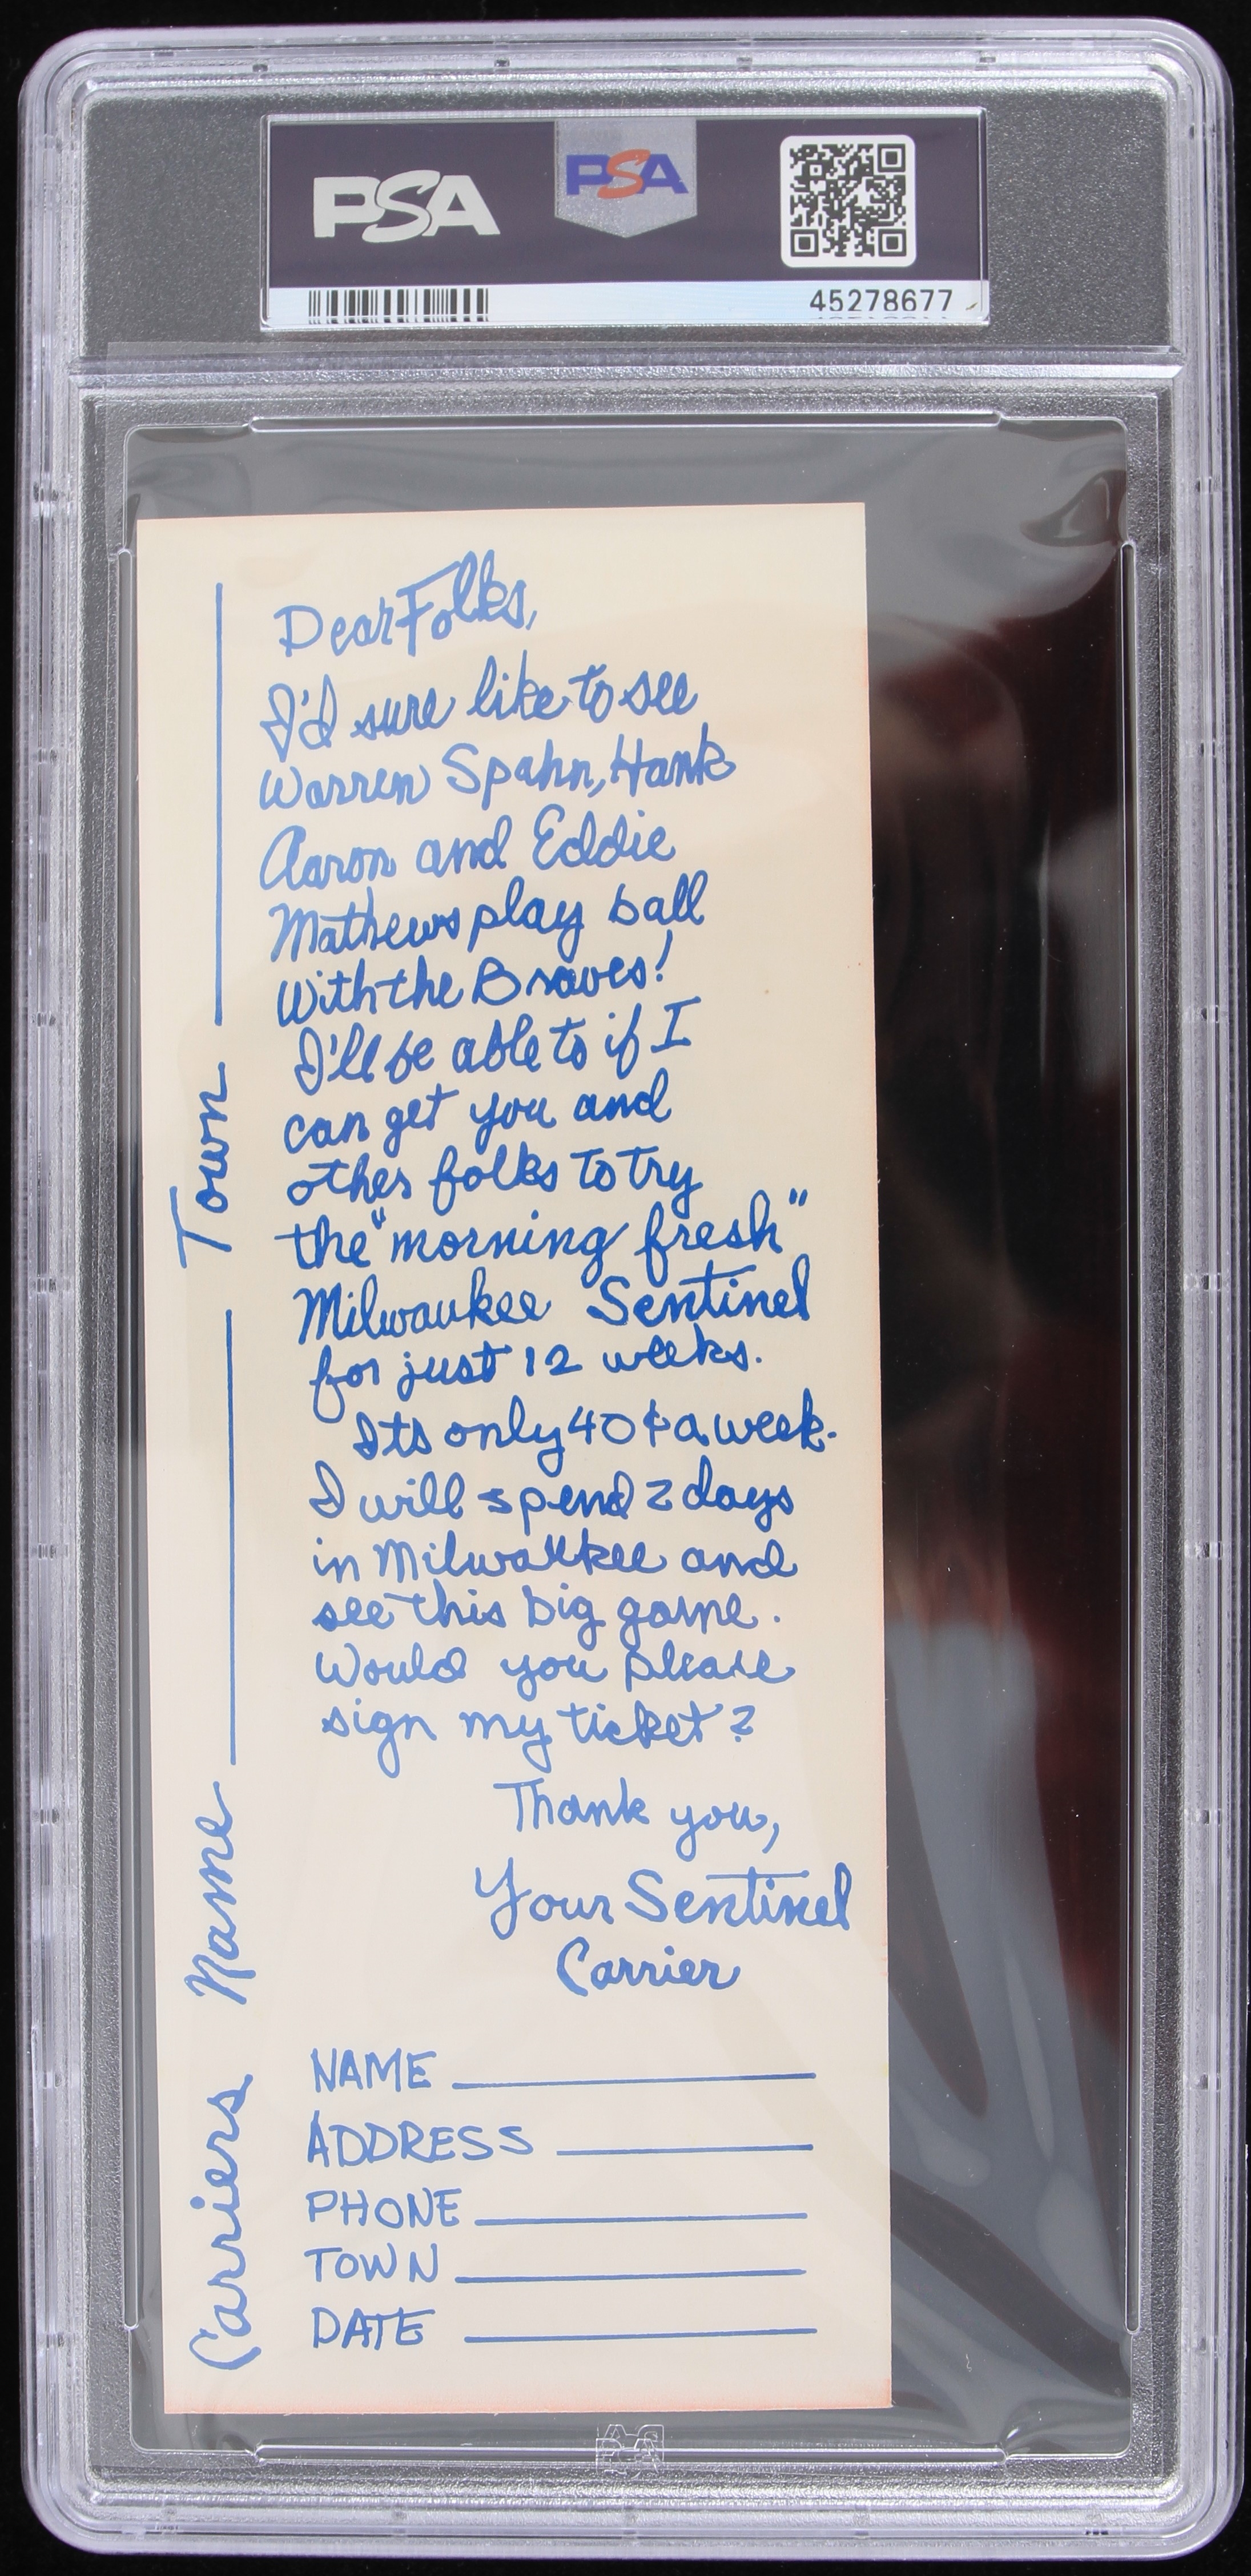 PSA
PSA
45278677
Dear Folks,
I'd sure like to see
Warren Spahn, Hank
Aaron and Eddie
Mathews play ball
with the Braves!
I'll be able to if I
can get you and
other folks to try
the "morning fresh"
Milwaukee Sentinel
for just 12 weeks.
Its only 40¢ a week.
I will spend 2 days
in Milwaukee and
see this big game.
Would you please
sign my ticket?
Thank you,
Your Sentinel
Carrier
NAME
ADDRESS
PHONE
TOWN
DATE
Carriers Name Town